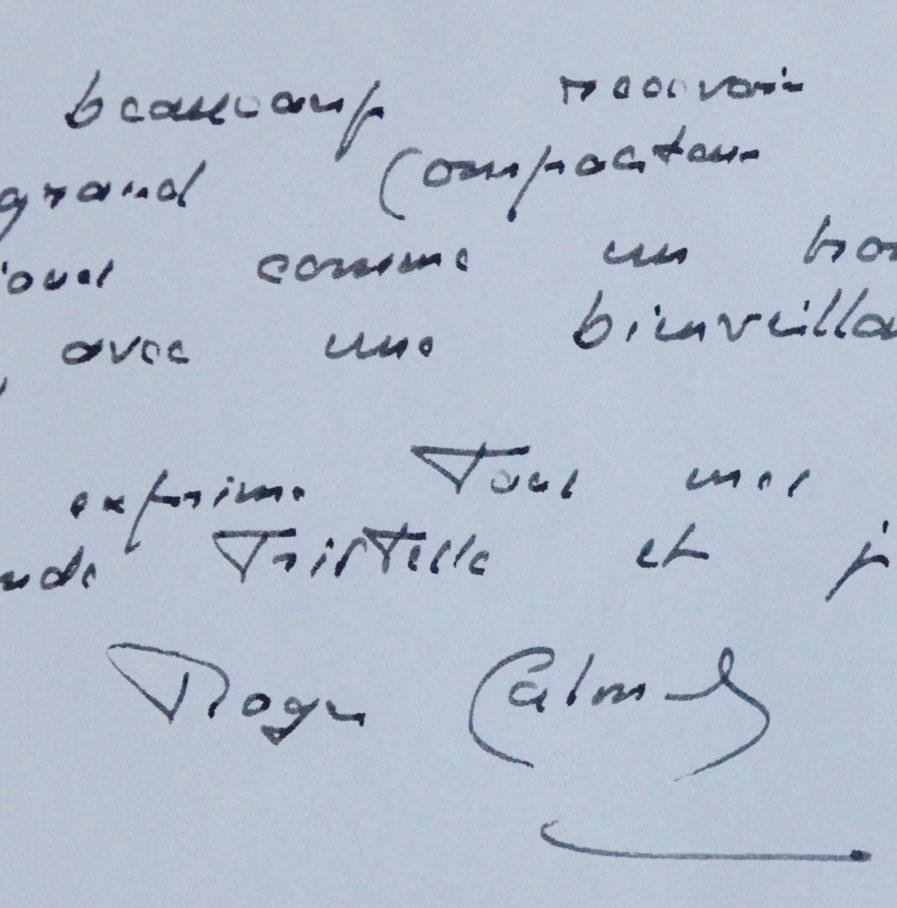 beaucoup recevoir
grand Compositeur
comme un
avec une bienveilla
exprime Tous mes
Tristesse et j
Roger Calmel